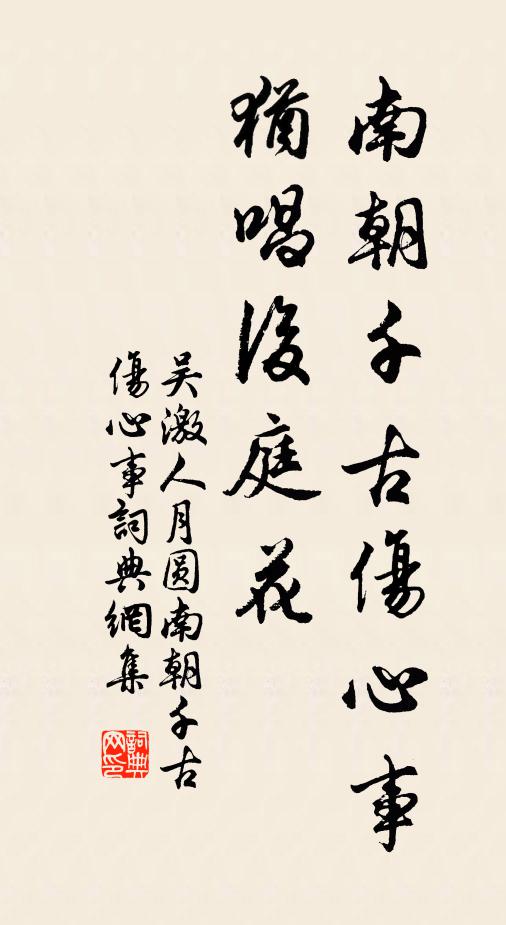 南朝千古傷心事
猶唱後庭花
吴激人月圆南朝千古
傷心事詞典網集
詞典網印